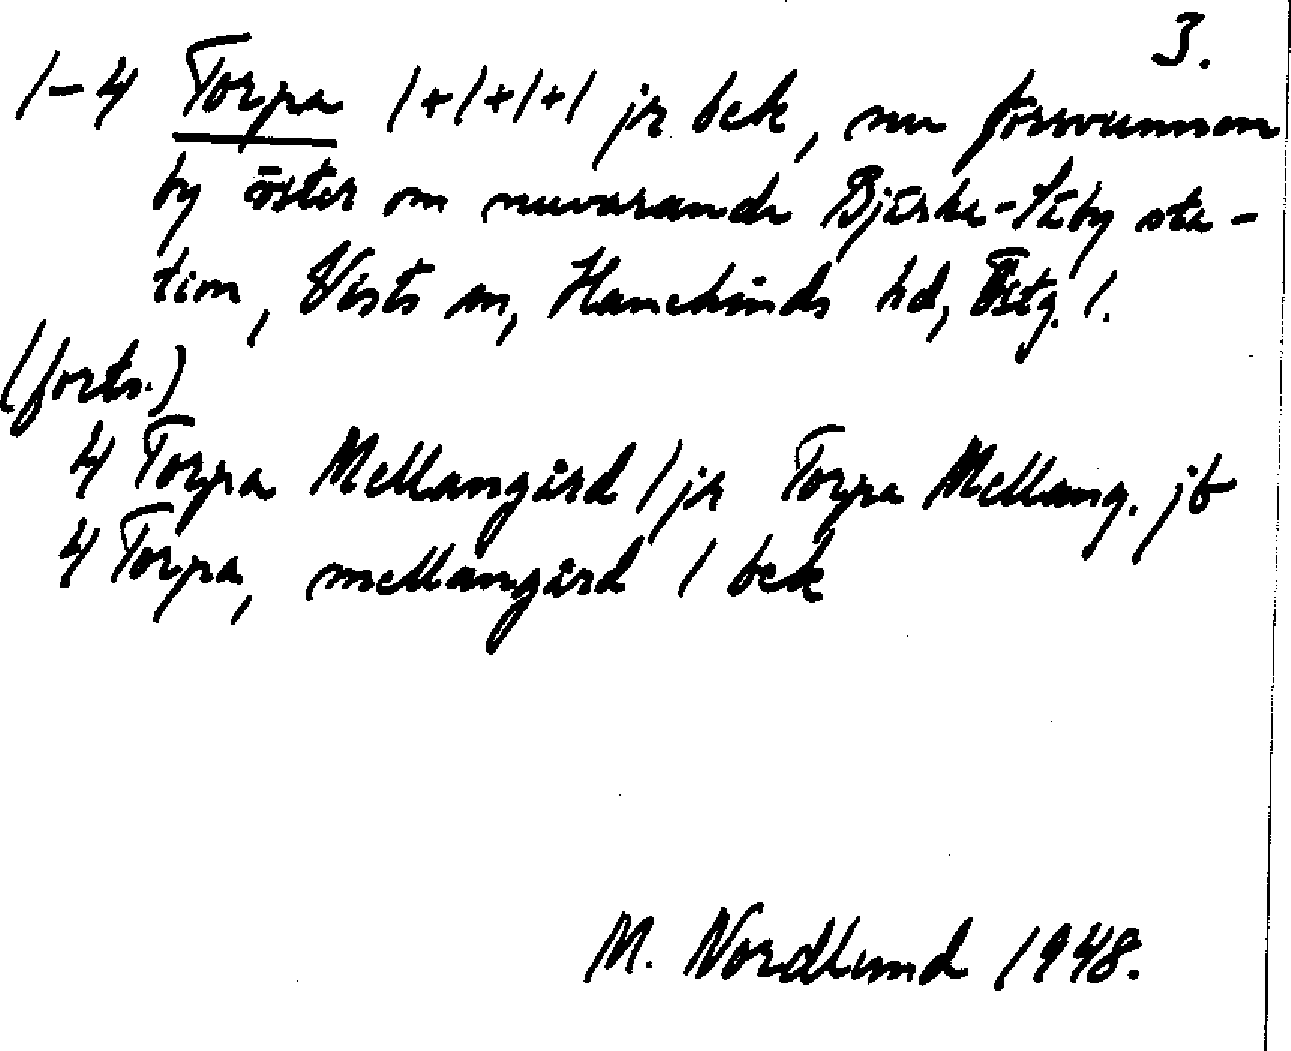 3.
1-4 Torpa 1+1+1+1 jr bek, nu försvunnen
by öster om nuvarande Bjärka-Säby sta-
tion, Vists sn, Hanekinds hd, Östg. l.
(forts.)
4 Torpa Mellangård 1 jr Torpa Mellang. jb
4 Torpa, mellangård 1 bek
M. Nordlund 1948.